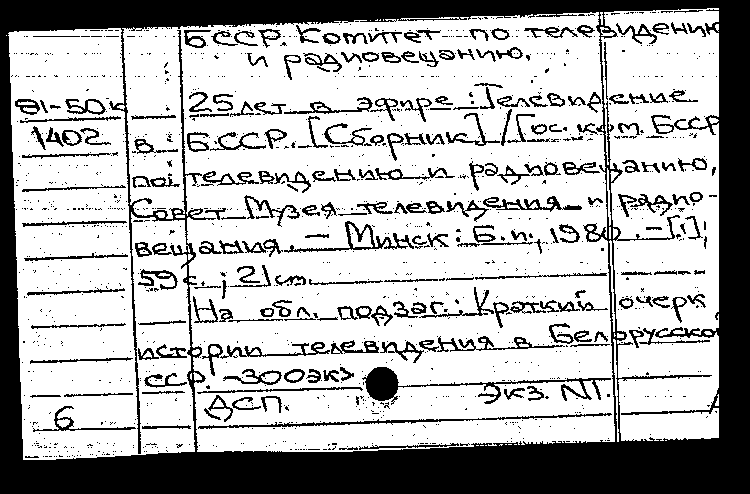 БССР. Комитет по телевидению
и радиовещанию.
81-50к 25 лет в эфире : Телевидение
1402 в БССР. [Сборник] / Гос. ком. БССР
по телевидению и радиовещанию,
Совет Музея телевидения и радио-
вещания. — Минск : Б. и., 1980. — [1],
59 с. ; 21 см.
На обл. подзаг. : Краткий очерк
истории телевидения в Белорусской
ССР. — 300 экз
6 ДСП. Экз. N1.